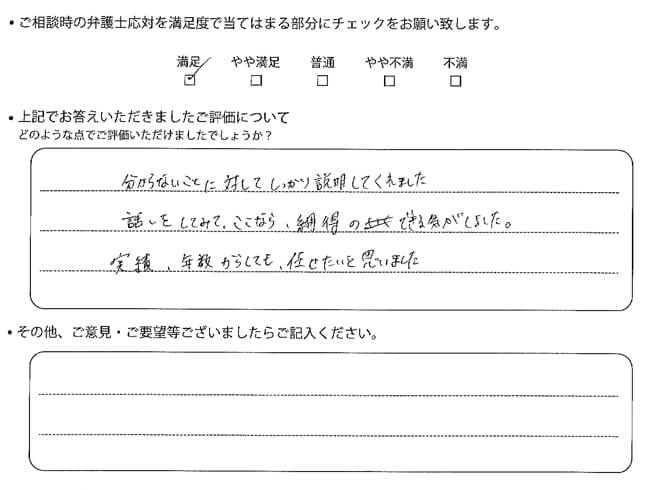 • ご相談時の弁護士応対を満足度で当てはまる部分にチェックをお願い致します。
満足 やや満足 普通 やや不満 不満
• 上記でお答えいただきましたご評価について
どのような点でご評価いただけましたでしょうか?
分からないことに対してしっかり説明してくれました
話しをしてみて、ここなら、納得のできる気がしました。
実績、年数からしても、任せたいと思いました
• その他、ご意見・ご要望等ございましたらご記入ください。